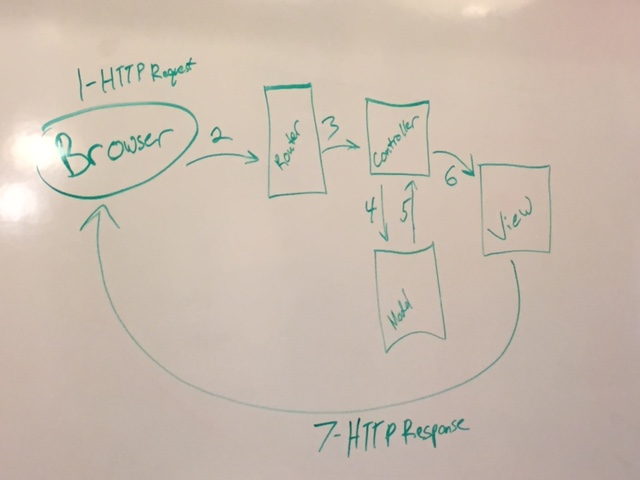 1-HTTP Request
Browser
2
Router
3
Controller
4
5
6
Model
View
7-HTTP Response